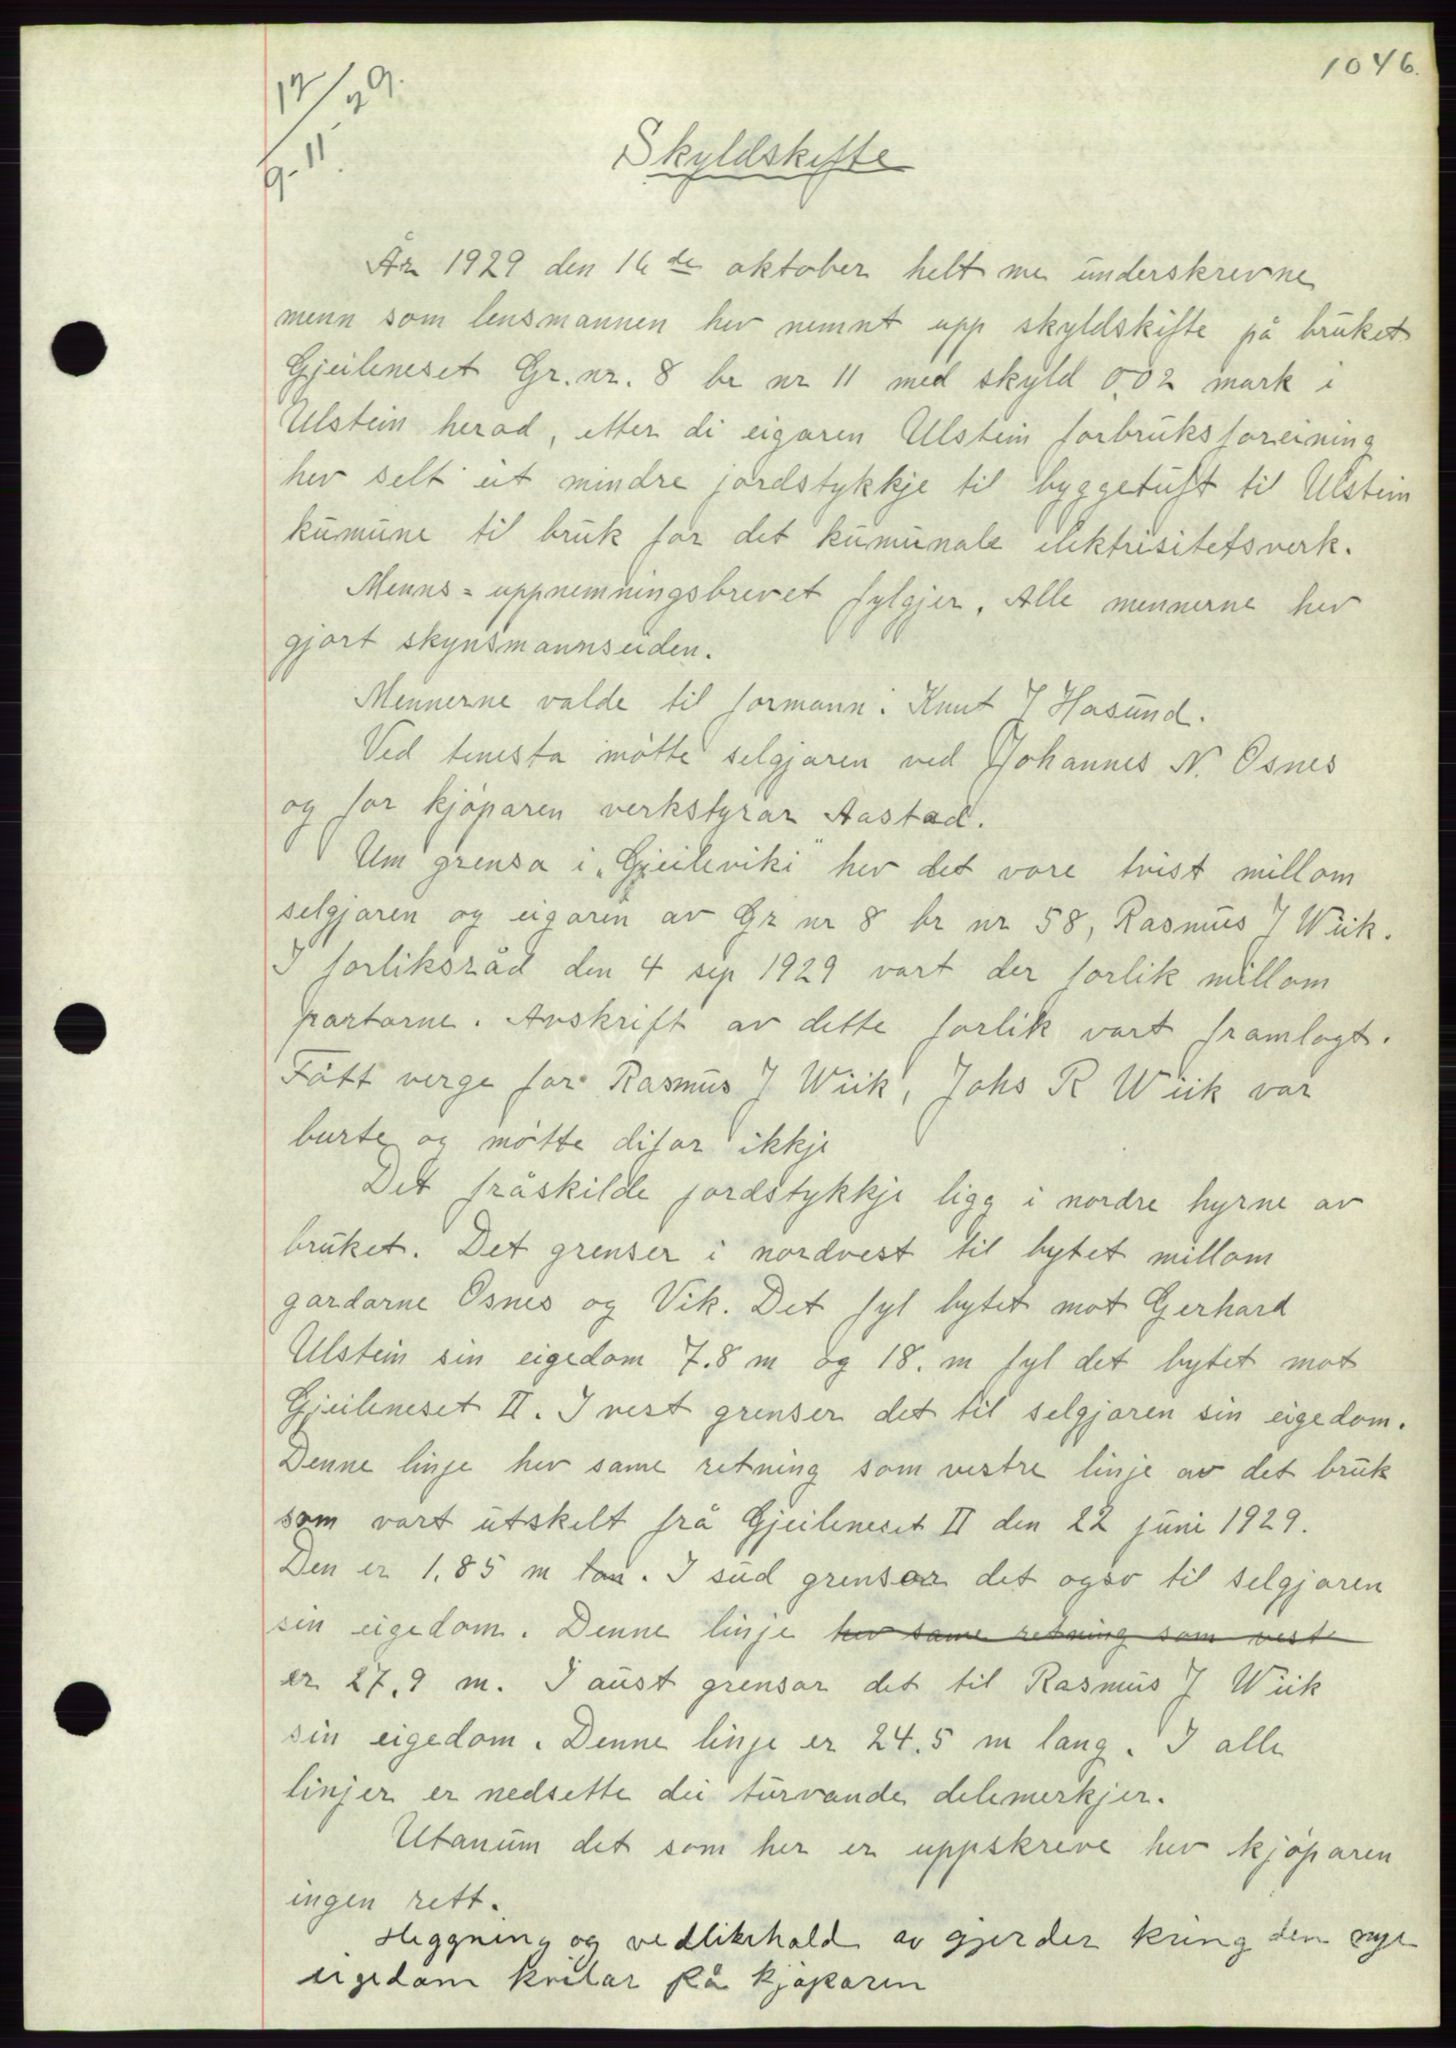 1046.
12/9-11-29.
Skyldskifte
År 1929 den 16de oktober helt me underskrevne
menn som lensmannen hev nemnt upp skyldskifte på bruket
Gjeileneset Gr. nr. 8 br nr 11 med skyld 0,02 mark i
Ulstein herad, etter di eigaren Ulstein forbruksforeining
hev selt eit mindre jordstykkje til byggetuft til Ulstein
kumune til bruk for det kumunale elektrisitetsverk.
Menns-uppnemningsbrevet fylgjer. Alle mennerne hev
gjort skynsmannseiden.
Mennerne valde til formann: Knut J Hasund.
Ved tenesta møtte selgjaren ved Johannes N. Osnes
og for kjøparen verkstyrar Aastad.
Um grensa i „Gjeileviki" hev det vore tvist millom
selgjaren og eigaren av Gr nr 8 br nr 58, Rasmus J Wiik.
I forliksråd den 4 sep 1929 vart der forlik millom
partarne. Avskrift av dette forlik vart framlagt.
Fått verge for Rasmus J Wiik, Johs R Wiik var
burte og møtte difor ikkje
Det fråskilde jordstykkje ligg i nordre hyrne av
bruket. Det grenser i nordvest til bytet millom
gardarne Osnes og Vik. Det fyl bytet mot Gerhard
Ulstein sin eigedom 7.8 m og 18. m fyl det bytet mot
Gjeileneset II. I vest grenser det til selgjaren sin eigedom.
Denne linje hev same retning som vestre linje av det bruk
som vart utskelt frå Gjeileneset II den 22 juni 1929.
Den er 1.85 m lan. I sud grensar det ogso til selgjaren
sin eigedom. Denne linje hev same retning som vest
er 27,9 m. I aust grensar det til Rasmus J Wiik
sin eigedom. Denne linje er 24.5 m lang. I alle
linjer er nedsette dei turvande delemerkjer.
Utanum det som her er uppskreve hev kjøparen
ingen rett.
Heggning og vedlikehald av gjerder kring den nye
eigedom kvilar på kjøparen